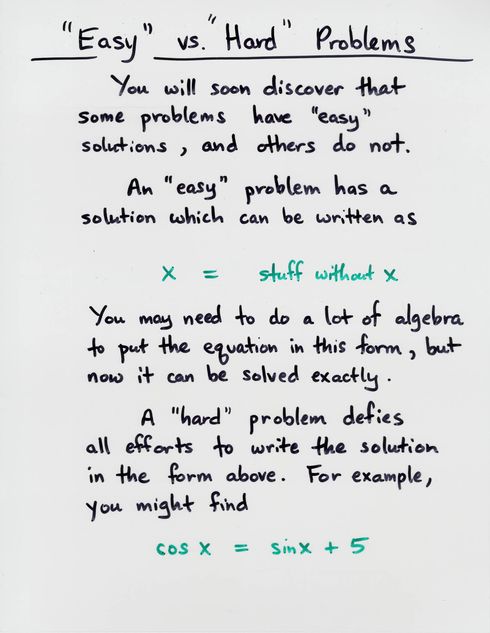 "Easy" vs. "Hard" Problems
You will soon discover that
some problems have "easy"
solutions, and others do not.
An "easy" problem has a
solution which can be written as
x = stuff without x
You may need to do a lot of algebra
to put the equation in this form, but
now it can be solved exactly.
A "hard" problem defies
all efforts to write the solution
in the form above. For example,
you might find
cos x = sin x + 5